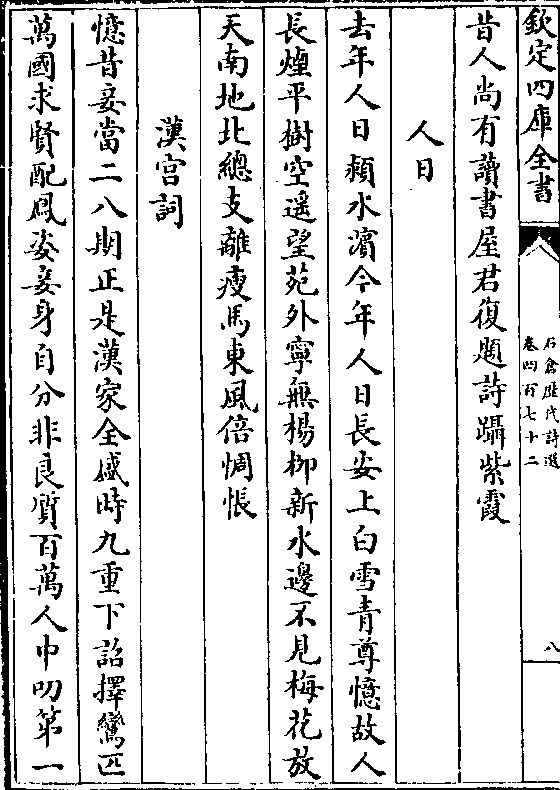 欽定四庫全書
石倉歷代詩選
卷四百七十二
八
昔人尚有讀書屋君復題詩躡紫霞
人日
去年人日潁水濵今年人日長安上白雪青尊憶故人
長煙平樹空遥望苑外寧無楊栁新水邊不見梅花放
天南地北總支離瘦馬東風倍惆悵
漢宫詞
憶昔妾當二八期正是漢家全盛時九重下詔擇鸞匹
萬國求賢配鳳姿妾身自分非良質百萬人中叨第一